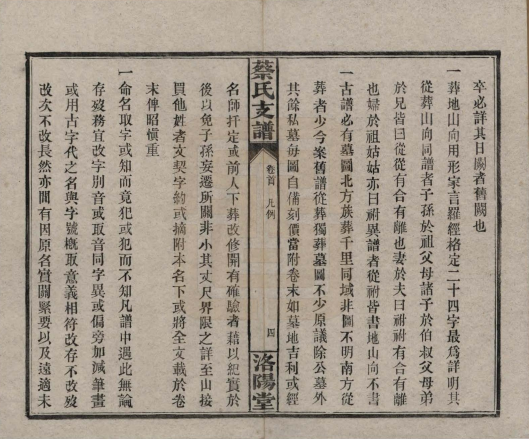 卒必詳其日闕者舊闕也
一葬地山向用形家言羅經格定二十四字最爲詳明其
從葬山向同譜者子孫於祖父母諸子於伯叔父母弟
於兄皆曰從從有合有離也妻於夫曰祔祔有合有離
也婦於祖姑姑亦曰祔異譜者從祔皆書地山向不書
一古譜必有墓圖北方族葬千里同域非圖不明南方從
葬者少今案舊譜從葬獨葬墓圖不少原議除公墓外
其餘私墓每圖自備刻價當附卷末如墓地吉利或經
蔡氏支譜
卷首 凡例
四
洛陽堂
名師扦定或前人下葬改修開有確驗者藉以紀實於
後以免子孫妄遷所關非小其丈尺界限之詳至山接
買他姓者文契字約或摘附本名下或將全文載於卷
末俾昭愼重
一命名取字或知而竟犯或犯而不知凡譜中遇此無論
存歿務宜改字別音或取音同字異或偏旁加減筆畫
或用古字代之名與字號槪取意義相符改存不改歿
改次不改長然亦間有因原名實關緊要以及遠適未